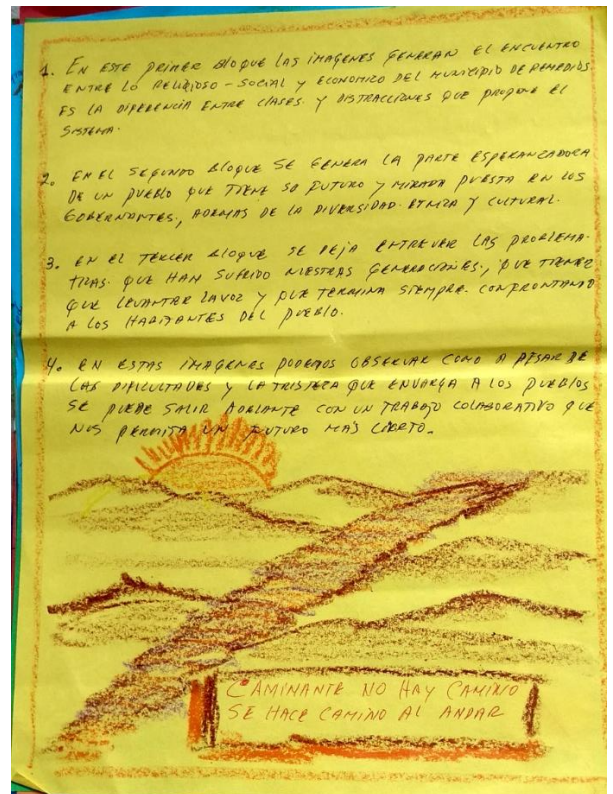 1. EN ESTE PRIMER BLOQUE LAS IMAGENES GENERAN EL ENCUENTRO
ENTRE LO RELIGIOSO - SOCIAL Y ECONOMICO DEL MUNICIPIO DE REMEDIOS
ES LA DIFERENCIA ENTRE CLASES. Y DISTRACCIONES QUE PROPONE EL
SISTEMA.
2. EN EL SEGUNDO BLOQUE SE GENERA LA PARTE ESPERANZADORA
DE UN PUEBLO QUE TIENE SO FUTURO Y MIRADA PUESTA EN LOS
GOBERNANTES, ADEMAS DE LA DIVERSIDAD ETNIZA Y CULTURAL.
3. EN EL TERCER BLOQUE SE DEJA ENTREVER LAS PROBLEMA-
TICAS. QUE HAN SUFRIDO NUESTRAS GENERACIONES, QUE TIENEN
QUE LEVANTAR LA VOZ Y QUE TERMINA SIEMPRE. CONFRONTANDO
A LOS HABITANTES DEL PUEBLO.
4. EN ESTAS IMAGENES PODEMOS OBSERVAR COMO A PESAR DE
LAS DIFICULTADES Y LA TRISTEZA QUE ENVARGA A LOS PUEBLOS
SE PUEDE SALIR ADELANTE CON UN TRABAJO COLABORATIVO QUE
NOS PERMITA UN FUTURO MAS CIERTO.
CAMINANTE NO HAY CAMINO
SE HACE CAMINO AL ANDAR